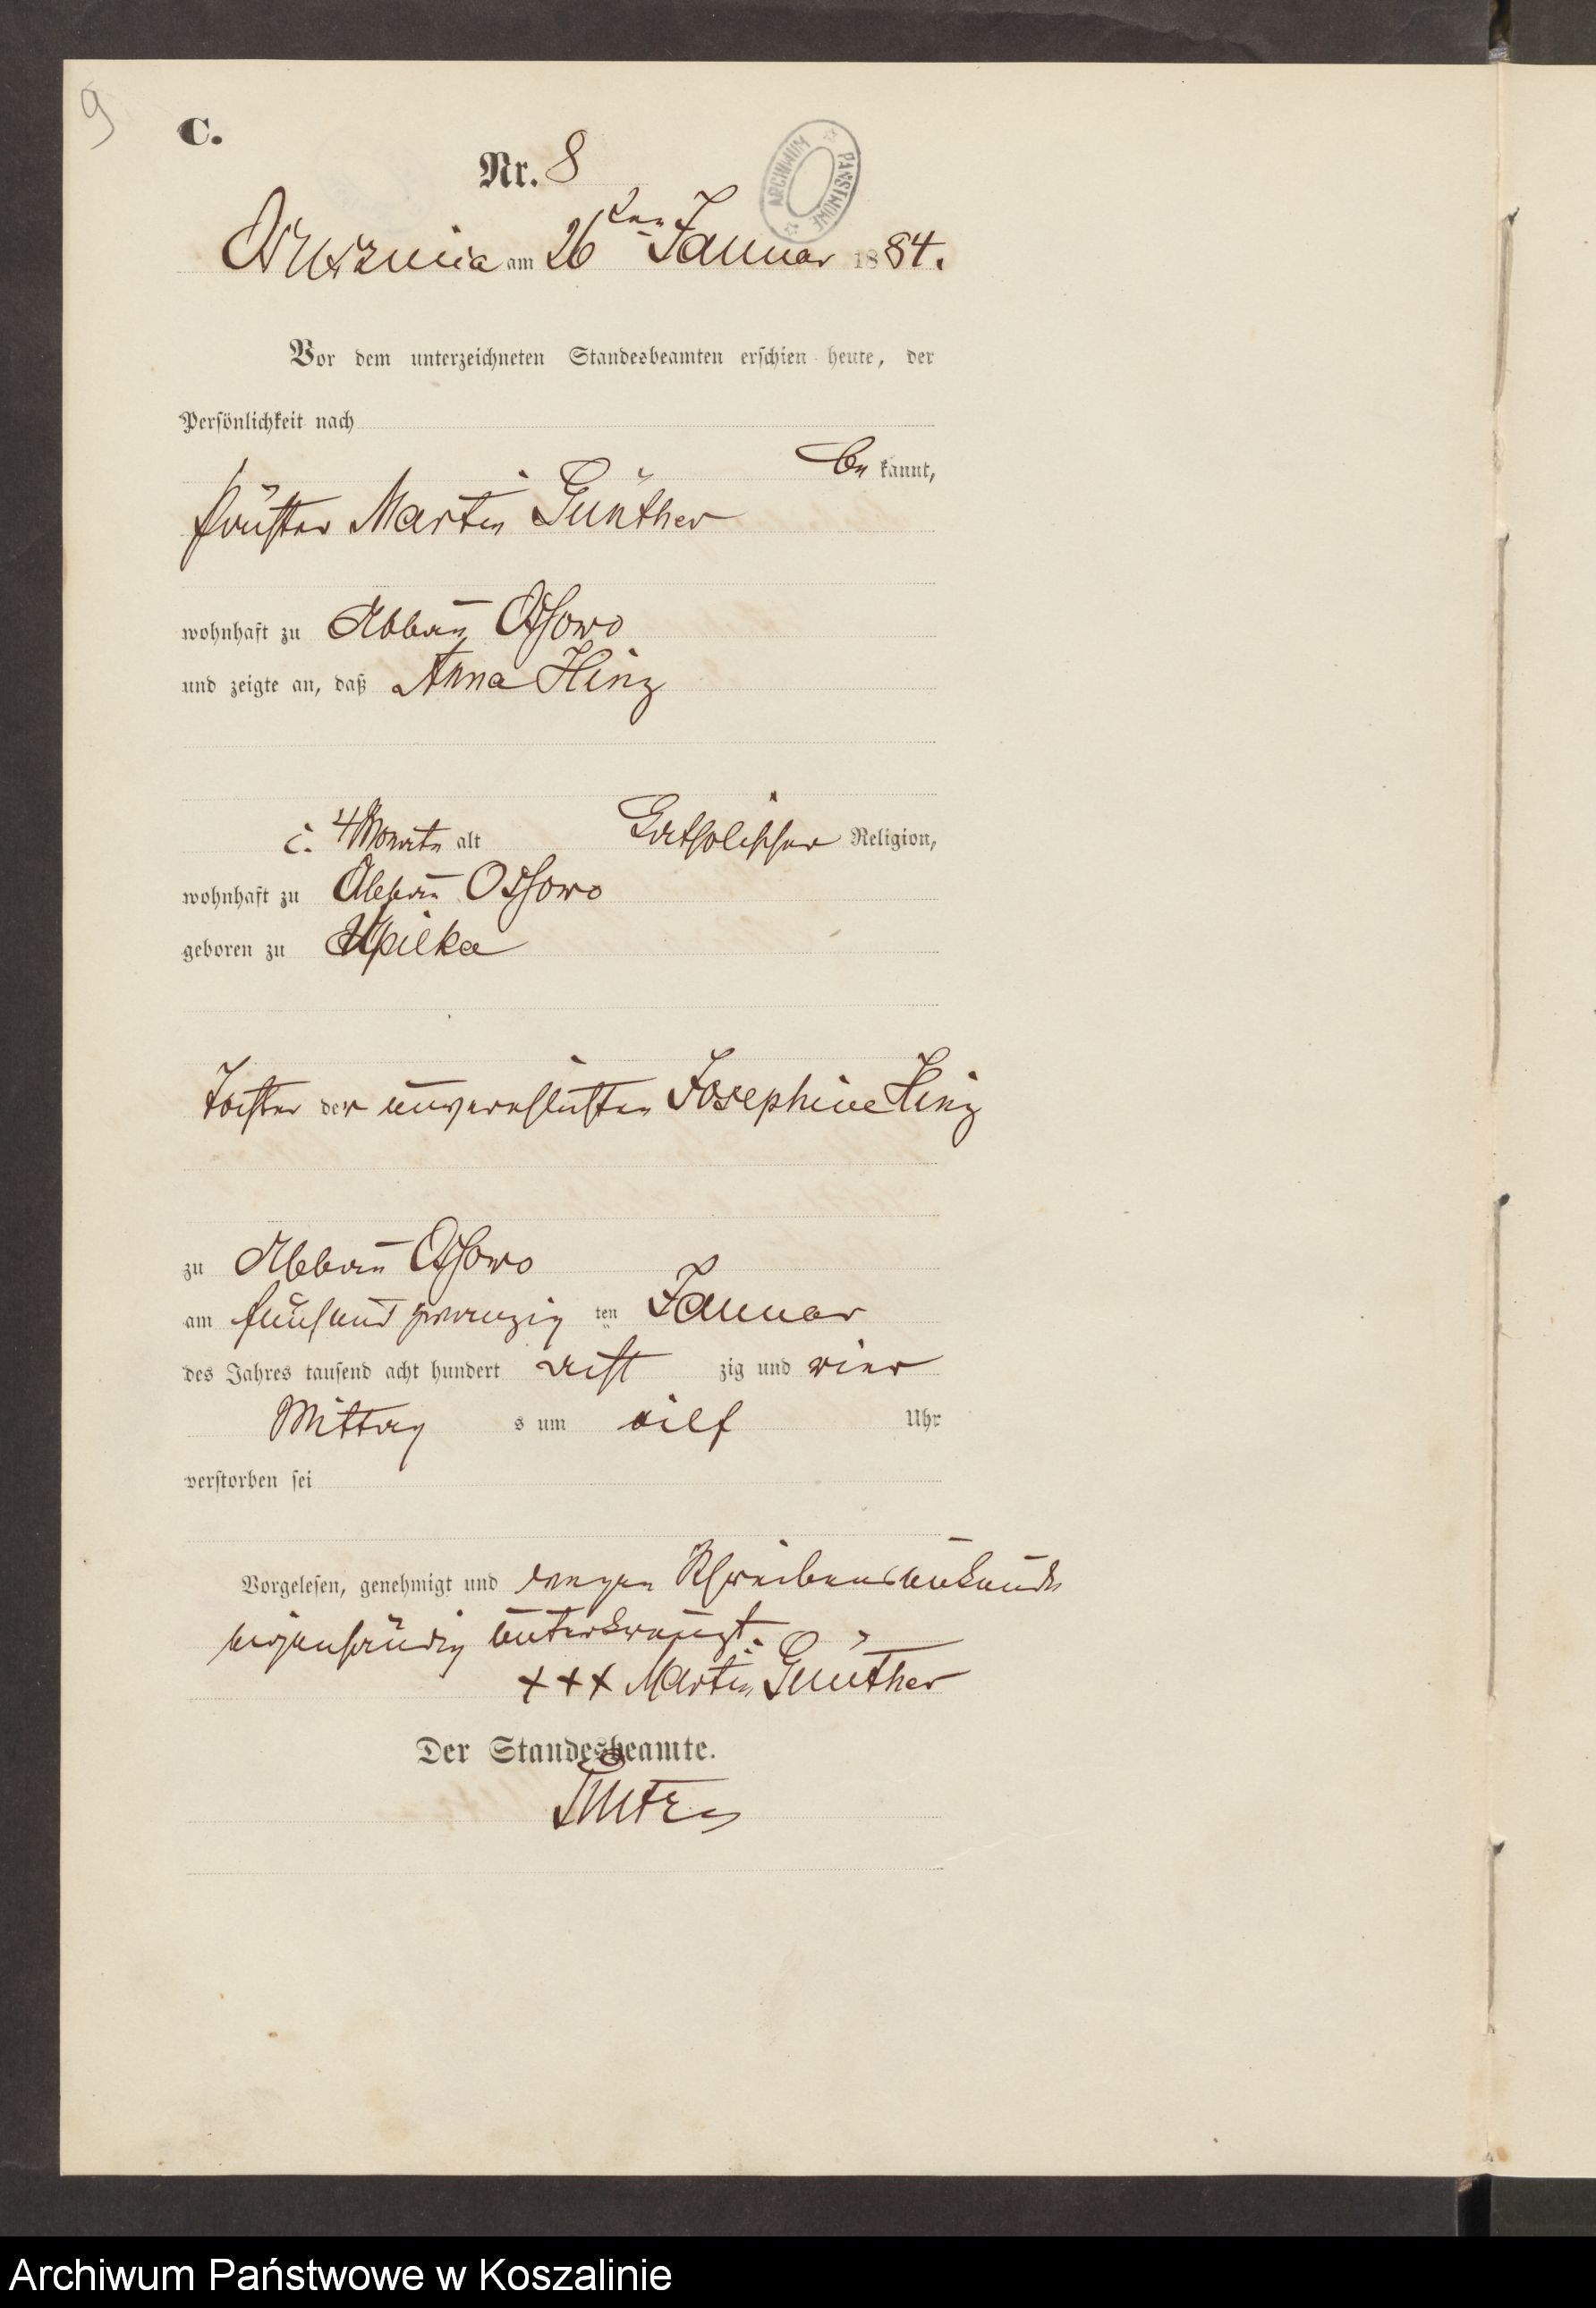 9
C.
Nr. 8
ARCHIWUM PAŃSTWOWE
am 26ten Januar 1884.
Vor dem unterzeichneten Standesbeamten erschien heute, der
Persönlichkeit nach
be kannt,
Martin Günther
wohnhaft zu Abbau Ossowo
und zeigte an, daß Anna Hinz
c. 4 Monate alt Catholischer Religion,
wohnhaft zu Abbau Ossowo
geboren zu
Tochter der unverehelichten Josephine Hinz
zu Abbau Ossowo
am fünfundzwanzig ten Januar
des Jahres tausend acht hundert acht zig und vier
Mittag s um eilf Uhr
verstorben sei
Vorgelesen, genehmigt und wegen Schreibensunkunde
eigenhändig unterkreuzt.
+++ Martin Günther
Der Standesbeamte.
Archiwum Państwowe w Koszalinie